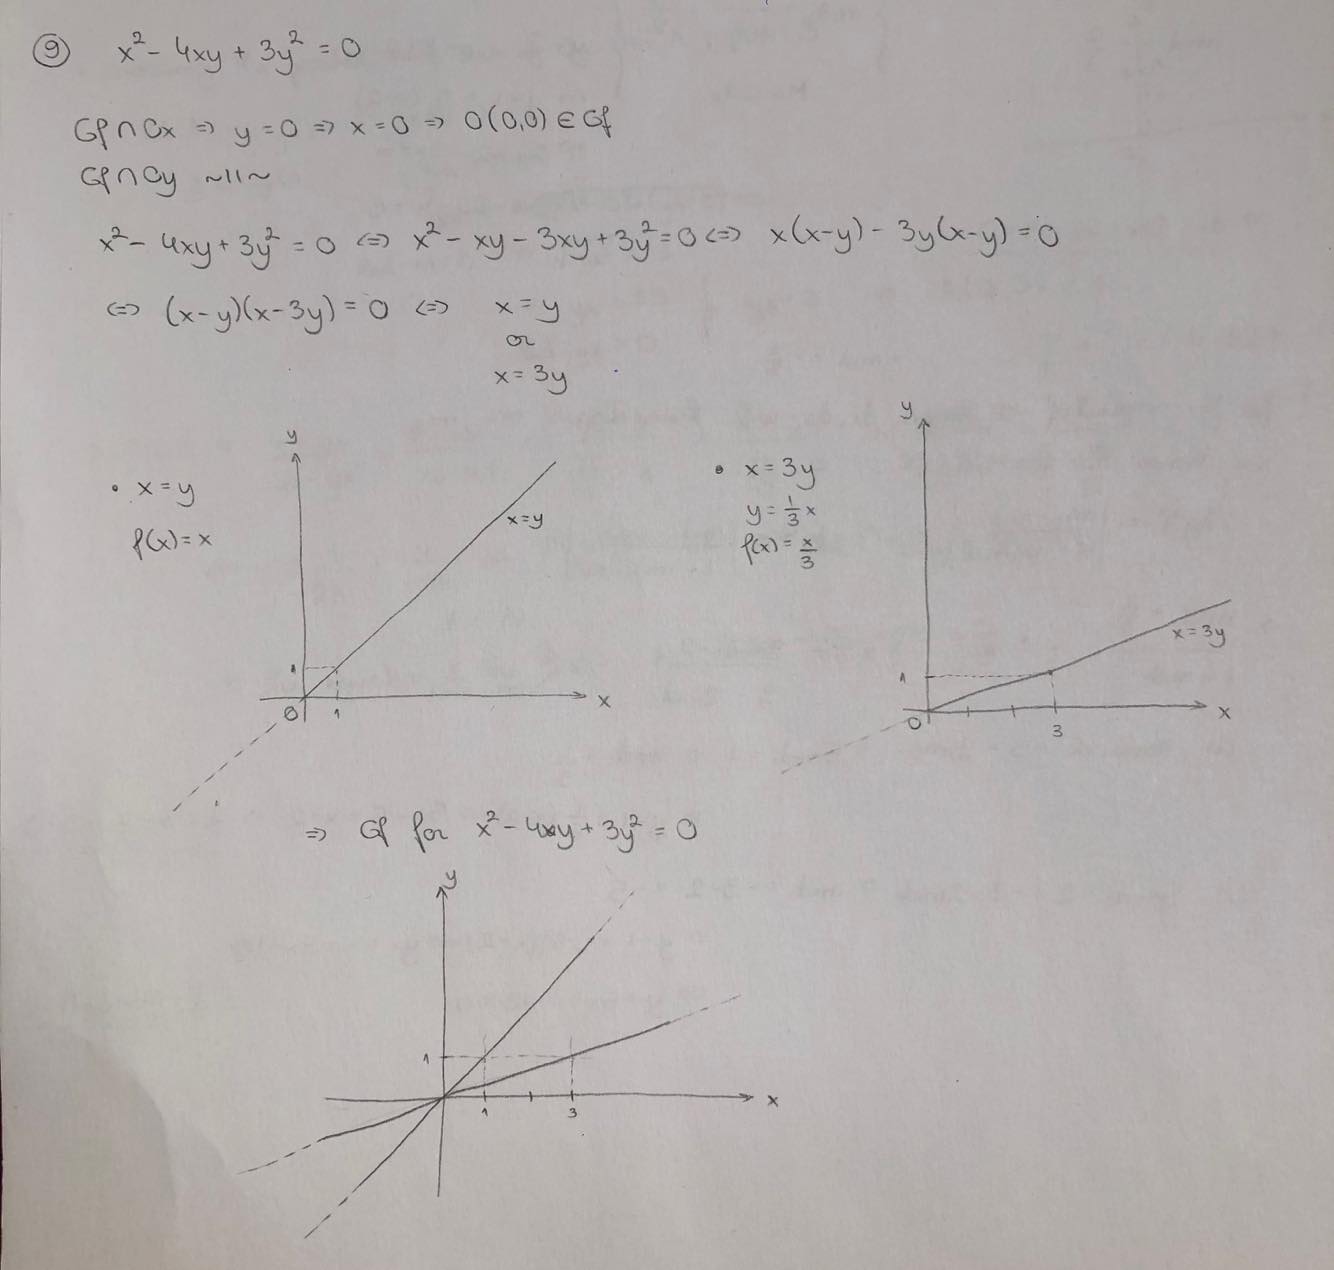 ⑨ x² - 4xy + 3y² = 0
Gf ∩ Ox ⇒ y = 0 ⇒ x = 0 ⇒ O(0,0) ∈ Gf
Gf ∩ Oy ~11~
x² - 4xy + 3y² = 0 ⇔ x² - xy - 3xy + 3y² = 0 ⇔ x(x-y) - 3y(x-y) = 0
⇔ (x-y)(x-3y) = 0 ⇔ x = y
or
x = 3y
• x = y
f(x) = x
y
x=y
1
O 1 x
• x = 3y
y = 1/3 x
f(x) = x/3
y
x=3y
1
O 3 x
⇒ Gf for x² - 4xy + 3y² = 0
y
1
1 3 x